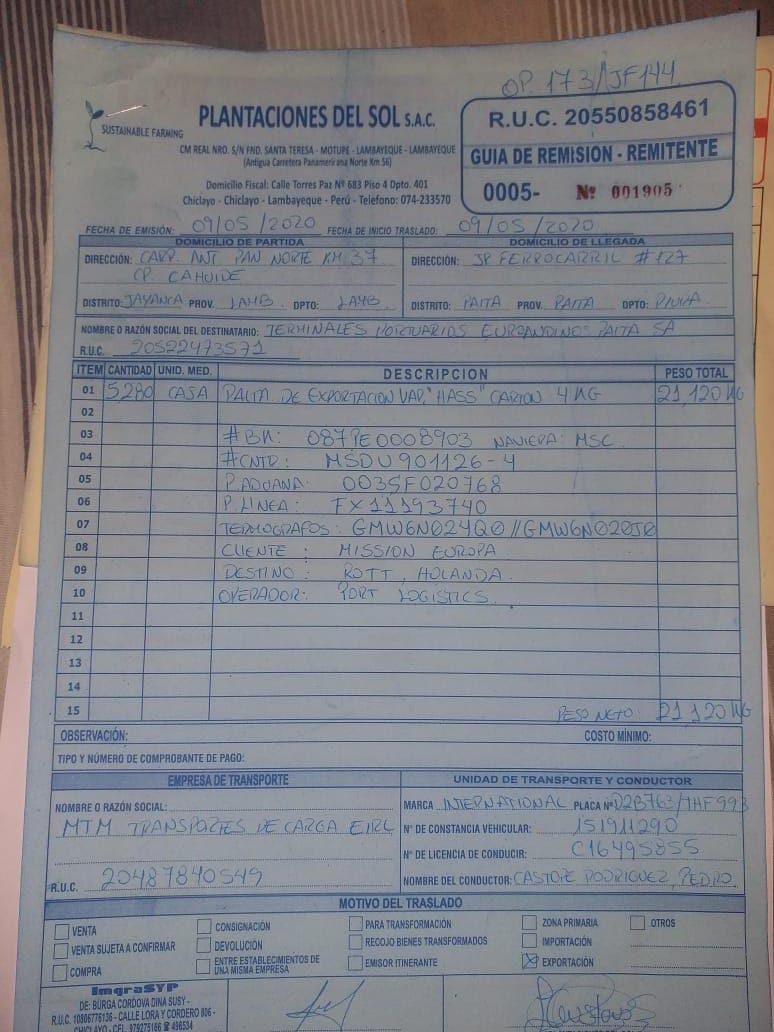 OP. 173/JF144
PLANTACIONES DEL SOL S.A.C.
SUSTAINABLE FARMING
CM REAL NRO. S/N FND. SANTA TERESA - MOTUPE - LAMBAYEQUE - LAMBAYEQUE
(Antigua Carretera Panamericana Norte Km 56)
Domicilio Fiscal: Calle Torres Paz Nº 683 Piso 4 Dpto. 401
Chiclayo - Chiclayo - Lambayeque - Perú - Telefono: 074-233570
R.U.C. 20550858461
GUIA DE REMISION - REMITENTE
0005- Nº 001905
FECHA DE EMISIÓN: 09/05/2020 FECHA DE INICIO TRASLADO: 09/05/2020
DOMICILIO DE PARTIDA
DIRECCIÓN: CARP. ANT. PAN NORTE KM 37
CP. CAHUIDE
DISTRITO: JAYANCA PROV. LAMB. DPTO: LAMB.
DOMICILIO DE LLEGADA
DIRECCIÓN: JP FERROCARRIL #127
DISTRITO: PAITA PROV. PAITA DPTO: PIURA
NOMBRE O RAZÓN SOCIAL DEL DESTINATARIO: TERMINALES PORTUARIOS EUROANDINOS PAITA SA
R.U.C. 20522473571
ITEM CANTIDAD UNID. MED. DESCRIPCION PESO TOTAL
01 5280 CAJA PALTA DE EXPORTACION VAR. "HASS" CARTON 4 KG 21,120 KG
02
03 #BK: 087PE0008903 NAVIERA: MSC
04 #CNTD: MSDU901126-4
05 P.ADUANA: 003SF020768
06 P.LINEA: FX11193740
07 TERMOGRAFOS: GMW6N024Q0//GMW6N020J0
08 CLIENTE: MISSION EUROPA
09 DESTINO: ROTT, HOLANDA.
10 OPERADOR: PORT LOGISTICS.
11
12
13
14
15 PESO NETO: 21,120 KG
OBSERVACIÓN: COSTO MÍNIMO:
TIPO Y NÚMERO DE COMPROBANTE DE PAGO:
EMPRESA DE TRANSPORTE
NOMBRE O RAZÓN SOCIAL:
MTM TRANSPORTES DE CARGA EIRL
R.U.C. 20487840549
UNIDAD DE TRANSPORTE Y CONDUCTOR
MARCA INTERNATIONAL PLACA Nº D2B763/THF993
N° DE CONSTANCIA VEHICULAR: 151911290
N° DE LICENCIA DE CONDUCIR: C16495855
NOMBRE DEL CONDUCTOR: CASTOPE RODRIGUEZ, PEDRO.
MOTIVO DEL TRASLADO
VENTA CONSIGNACIÓN PARA TRANSFORMACIÓN ZONA PRIMARIA OTROS
VENTA SUJETA A CONFIRMAR DEVOLUCIÓN RECOJO BIENES TRANSFORMADOS IMPORTACIÓN
COMPRA ENTRE ESTABLECIMIENTOS DE UNA MISMA EMPRESA EMISOR ITINERANTE EXPORTACIÓN
ImgraSYP
DE: BURGA CORDOVA DINA SUSY -
R.U.C. 10806776136 - CALLE LORA Y CORDERO 806 -
CHICLAYO - CEL. 979275186 ☎ 496534